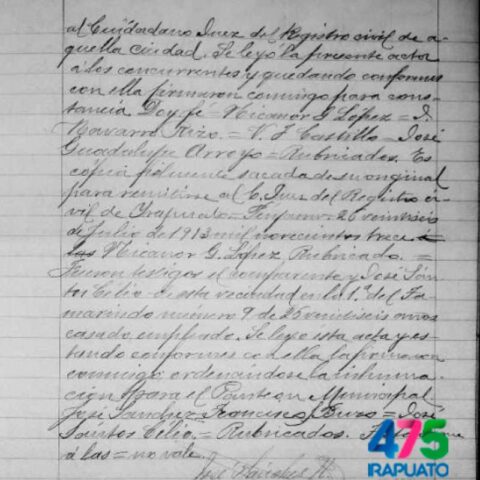 al Ciudadano Juez del Registro civil de a-
quella ciudad. Se leyo la presente acta
á los concurrentes y quedando conformes
con ella firmaron conmigo para cons-
tancia Doy fé = Nicanor G. López = J.
Navarro Rizo. = V. F. Castillo = José
Guadalupe Arroyo = Rubricados. Es
cópia fielmente sacada de su original
para remitirse al C. Juez del Registro ci-
vil de Irapuato = Pénjamo = 26 veintiseis
de Julio de 1913 mil novecientos trece = á
las = Nicanor G. López Rubricado. =
Fueron testigos el compareciente y José Sán-
tos Cilio de esta vecindad en la 1ª del Ta-
marindo número 9 de 25 años
casado, empleado. Se leyo ésta acta y es-
tando conformes con ella la firmaron
conmigo ordenándose la inhuma-
cion para el Panteon Municipal
José Sanchez. Francisco = José
Sántos Cilio. = Rubricados.
á las = no vale.
José Sánchez
475
IRAPUATO